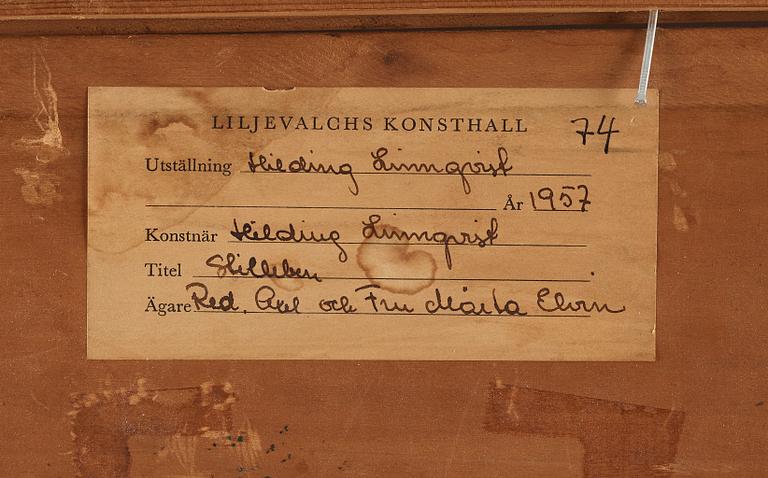 LILJEVALCHS KONSTHALL 74
Utställning Hilding Linnqvist
År 1957
Konstnär Hilding Linnqvist
Titel Stilleben
Ägare Red. Axel och Fru Märta Elvin